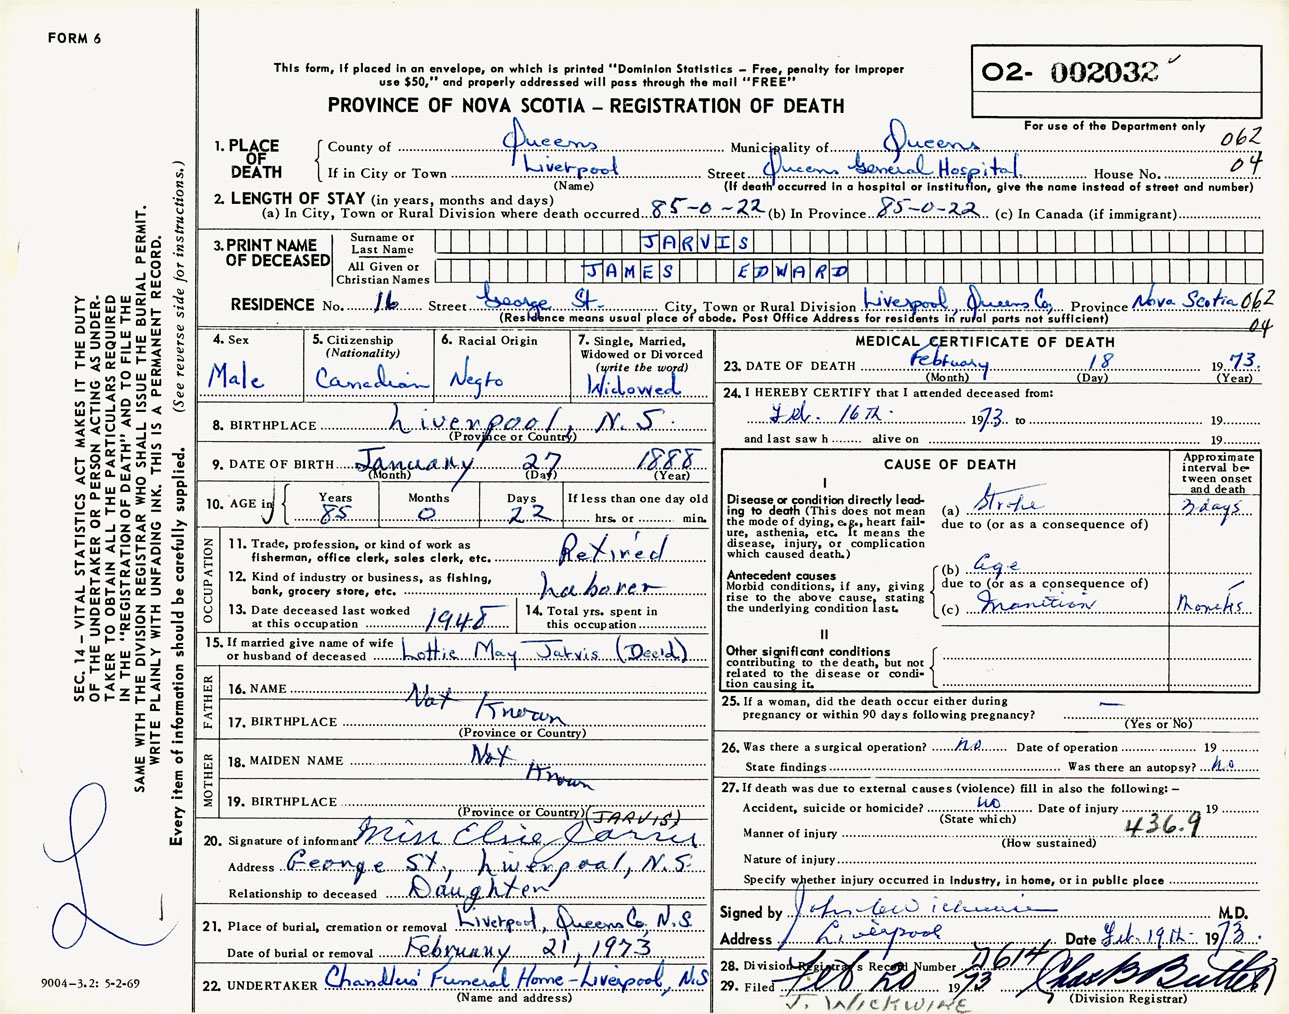 FORM 6
This form, if placed in an envelope, on which is printed "Dominion Statistics – Free, penalty for improper
use $50," and properly addressed will pass through the mail "FREE"
O2- 002032
PROVINCE OF NOVA SCOTIA – REGISTRATION OF DEATH
For use of the Department only
062
04
1. PLACE OF DEATH
County of Queens Municipality of Queens
If in City or Town Liverpool Street Queens General Hospital House No.
(Name) (If death occurred in a hospital or institution, give the name instead of street and number)
2. LENGTH OF STAY (in years, months and days)
(a) In City, Town or Rural Division where death occurred 85-0-22 (b) In Province 85-0-22 (c) In Canada (if immigrant)
3. PRINT NAME OF DECEASED
Surname or Last Name JARVIS
All Given or Christian Names JAMES EDWARD
RESIDENCE No. 16 Street George St. City, Town or Rural Division Liverpool, Queens Co, Province Nova Scotia 062
(Residence means usual place of abode. Post Office Address for residents in rural parts not sufficient)
04
4. Sex
Male
5. Citizenship
(Nationality)
Canadian
6. Racial Origin
Negro
7. Single, Married,
Widowed or Divorced
(write the word)
Widowed
8. BIRTHPLACE Liverpool, N.S.
(Province or Country)
9. DATE OF BIRTH January 27 1888
(Month) (Day) (Year)
10. AGE in
Years Months Days If less than one day old
85 0 22 hrs. or min.
OCCUPATION
11. Trade, profession, or kind of work as
fisherman, office clerk, sales clerk, etc. Retired
12. Kind of industry or business, as fishing,
bank, grocery store, etc. Laborer
13. Date deceased last worked
at this occupation 1948
14. Total yrs. spent in
this occupation
15. If married give name of wife
or husband of deceased Lottie May Jarvis (Dec'd)
FATHER
16. NAME Not Known
17. BIRTHPLACE
(Province or Country)
MOTHER
18. MAIDEN NAME Not Known
19. BIRTHPLACE
(Province or Country) (JARVIS)
20. Signature of informant Miss Elsie Jarvis
Address George St., Liverpool, N.S.
Relationship to deceased Daughter
21. Place of burial, cremation or removal Liverpool, Queens Co, N.S
Date of burial or removal February 21, 1973
22. UNDERTAKER Chandlers' Funeral Home – Liverpool, N.S
(Name and address)
MEDICAL CERTIFICATE OF DEATH
23. DATE OF DEATH February 18 1973.
(Month) (Day) (Year)
24. I HEREBY CERTIFY that I attended deceased from:
Feb. 16th. 1973 to 19
and last saw h alive on 19
CAUSE OF DEATH
Approximate
interval be-
tween onset
and death
I
Disease or condition directly lead-
ing to death (This does not mean
the mode of dying, e.g., heart fail-
ure, asthenia, etc. It means the
disease, injury, or complication
which caused death.)
(a) Stroke 3 days
due to (or as a consequence of)
Antecedent causes
Morbid conditions, if any, giving
rise to the above cause, stating
the underlying condition last.
(b) Age
due to (or as a consequence of)
(c) Inanition Months
II
Other significant conditions
contributing to the death, but not
related to the disease or condi-
tion causing it.
25. If a woman, did the death occur either during
pregnancy or within 90 days following pregnancy? —
(Yes or No)
26. Was there a surgical operation? no Date of operation 19
State findings Was there an autopsy? No
27. If death was due to external causes (violence) fill in also the following: –
Accident, suicide or homicide? no Date of injury 19
(State which)
436.9
Manner of injury
(How sustained)
Nature of injury
Specify whether injury occurred in industry, in home, or in public place
Signed by John C Wickwire M.D.
Address Liverpool Date Feb. 19th. 1973.
28. Division Registrar's Record Number 7614
29. Filed Feb 20 1973 Chas B Butler
(Division Registrar)
J. WICKWIRE
SEC. 14 – VITAL STATISTICS ACT MAKES IT THE DUTY
OF THE UNDERTAKER OR PERSON ACTING AS UNDER-
TAKER TO OBTAIN ALL THE PARTICULARS REQUIRED
IN THE "REGISTRATION OF DEATH" AND TO FILE THE
SAME WITH THE DIVISION REGISTRAR WHO SHALL ISSUE THE BURIAL PERMIT.
WRITE PLAINLY WITH UNFADING INK. THIS IS A PERMANENT RECORD.
Every item of information should be carefully supplied. (See reverse side for instructions.)
9004–3.2: 5-2-69